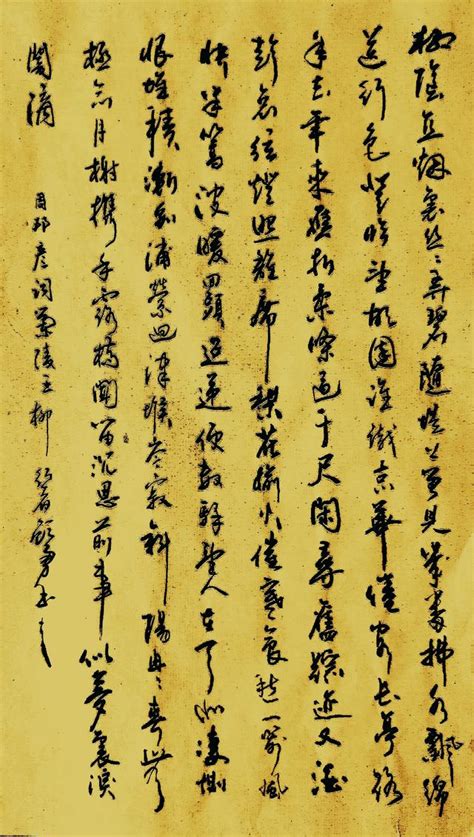 柳陰直煙裏絲々弄碧隨堤上曾見幾番拂水飄綿
送行色登臨望故國誰識京華倦客長亭路
年去年來應折柔條過千尺閑尋舊蹤迹又酒
趁哀弦燈照離席梨花榆火催寒食愁一箭風
快半篙波暖回頭迢遞便數驛望人在天北淒惻
恨堆積漸別浦縈迴津堠岑寂斜陽冉々春無
極念月榭攜手露橋聞笛沉思前事似夢裏淚
闇滴
周邦彥詞蘭陵王柳